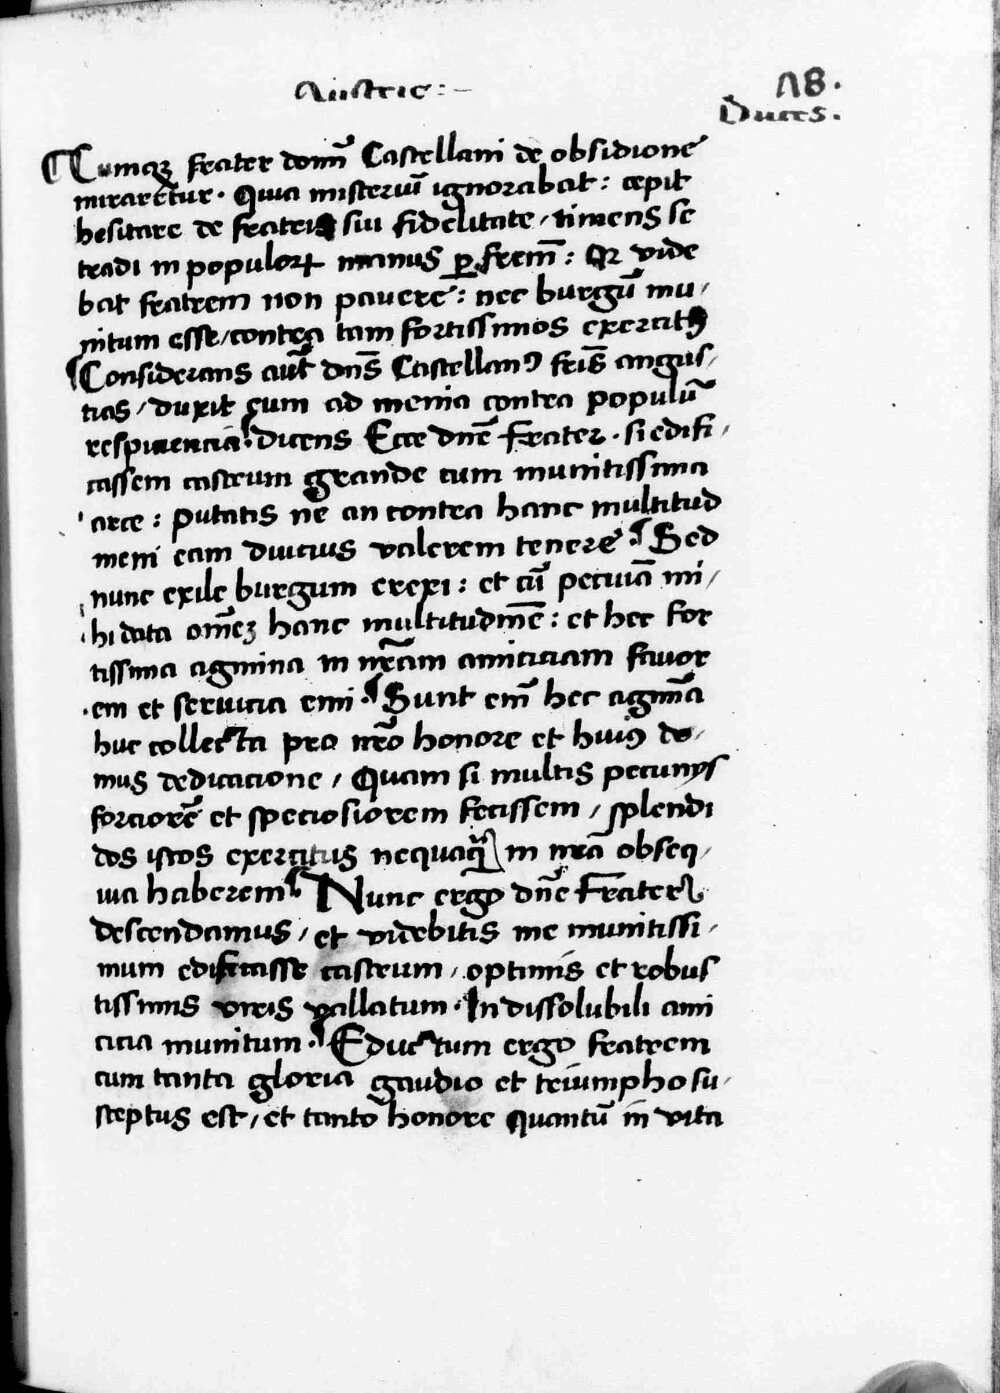 Austrie:–
18.
Duces.
¶ Cumqꝫ frater domī Castellani de obsidione
miraretur. Quia misteriū ignorabat: cepit
hesitare de fratris sui fidelitate / timens se
tradi in populoꝝ manus ꝑ frem̄: Qꝛ vide
bat fratrem non pavere: nec burgū mu/
nitum esse / contra tam fortissimos exercitꝰ
¶ Considerans aūt dn̄s Castellanꝰ fr̄is angus/
tias / duxit eum ad menia contra populū
respiciencia. dicens Ecce dn̄e Frater. si edifi/
cassem castrum grande cum munitissima
arce: putatis ne an contra hanc multitud
ineni eam diucius valerem tenere. ¶ Sed
nunc exile burgum erexi: et cū pecuīa mi/
hi data om̄eꝫ hanc multitudinē: et hec for
tissima agmina in nr̄am amiciciam favor
em et servicia emi. ¶ Sunt em̄ hec agmīa
huc collecta pro nr̄o honore et huiꝰ do/
mus dedicacione / Quam si multis pecunys
forciorē et speciosiorem fecissem / splendi
dos istos exercitus nequaqͣ in nr̄a obseq/
uia haberem ¶ Nunc ergo dn̄e Frater
descendamus / et videbitis me munitissi/
mum edificasse castrum / optimis et robus
tissimis viris vallatum. Indissolubili ami
cicia munitum. ¶ Eductum ergo fratrem
cum tanta gloria gaudio et triumpho su/
sceptus est / et tanto honore quantū in vita